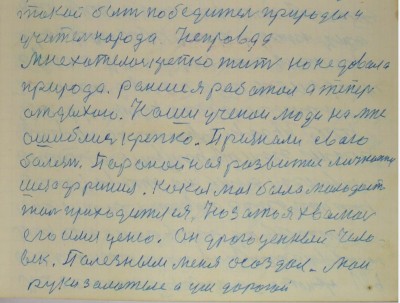 такой быт победител природы и
учител народа. Неправда
Мне хателос крепко жит но не довала
природа. раншея работал а тепер
отдыхаю. Наши ученои люди на мне
ошиблис крепко. Признали сваго
балезн. Паронойная развитие личности
шизафрения. Какая моя была молодост
там приходится, Но за то я хвалю
его имя ценю. Он дрогоценный чело-
век. Полезным меня создал. Мои
руки золотые а ум дорогой